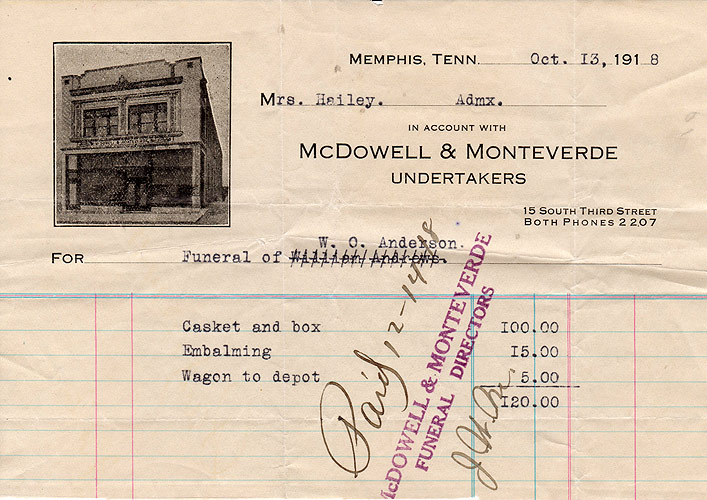 MEMPHIS, TENN. Oct. 13, 1918
Mrs. Hailey. Admx.
IN ACCOUNT WITH
MCDOWELL & MONTEVERDE
UNDERTAKERS
15 SOUTH THIRD STREET
BOTH PHONES 2207
W. O. Anderson.
FOR Funeral of Willien Andrews.
Casket and box 100.00
Embalming 15.00
Wagon to depot 5.00
120.00
Paid 12-14-18
MCDOWELL & MONTEVERDE
FUNERAL DIRECTORS